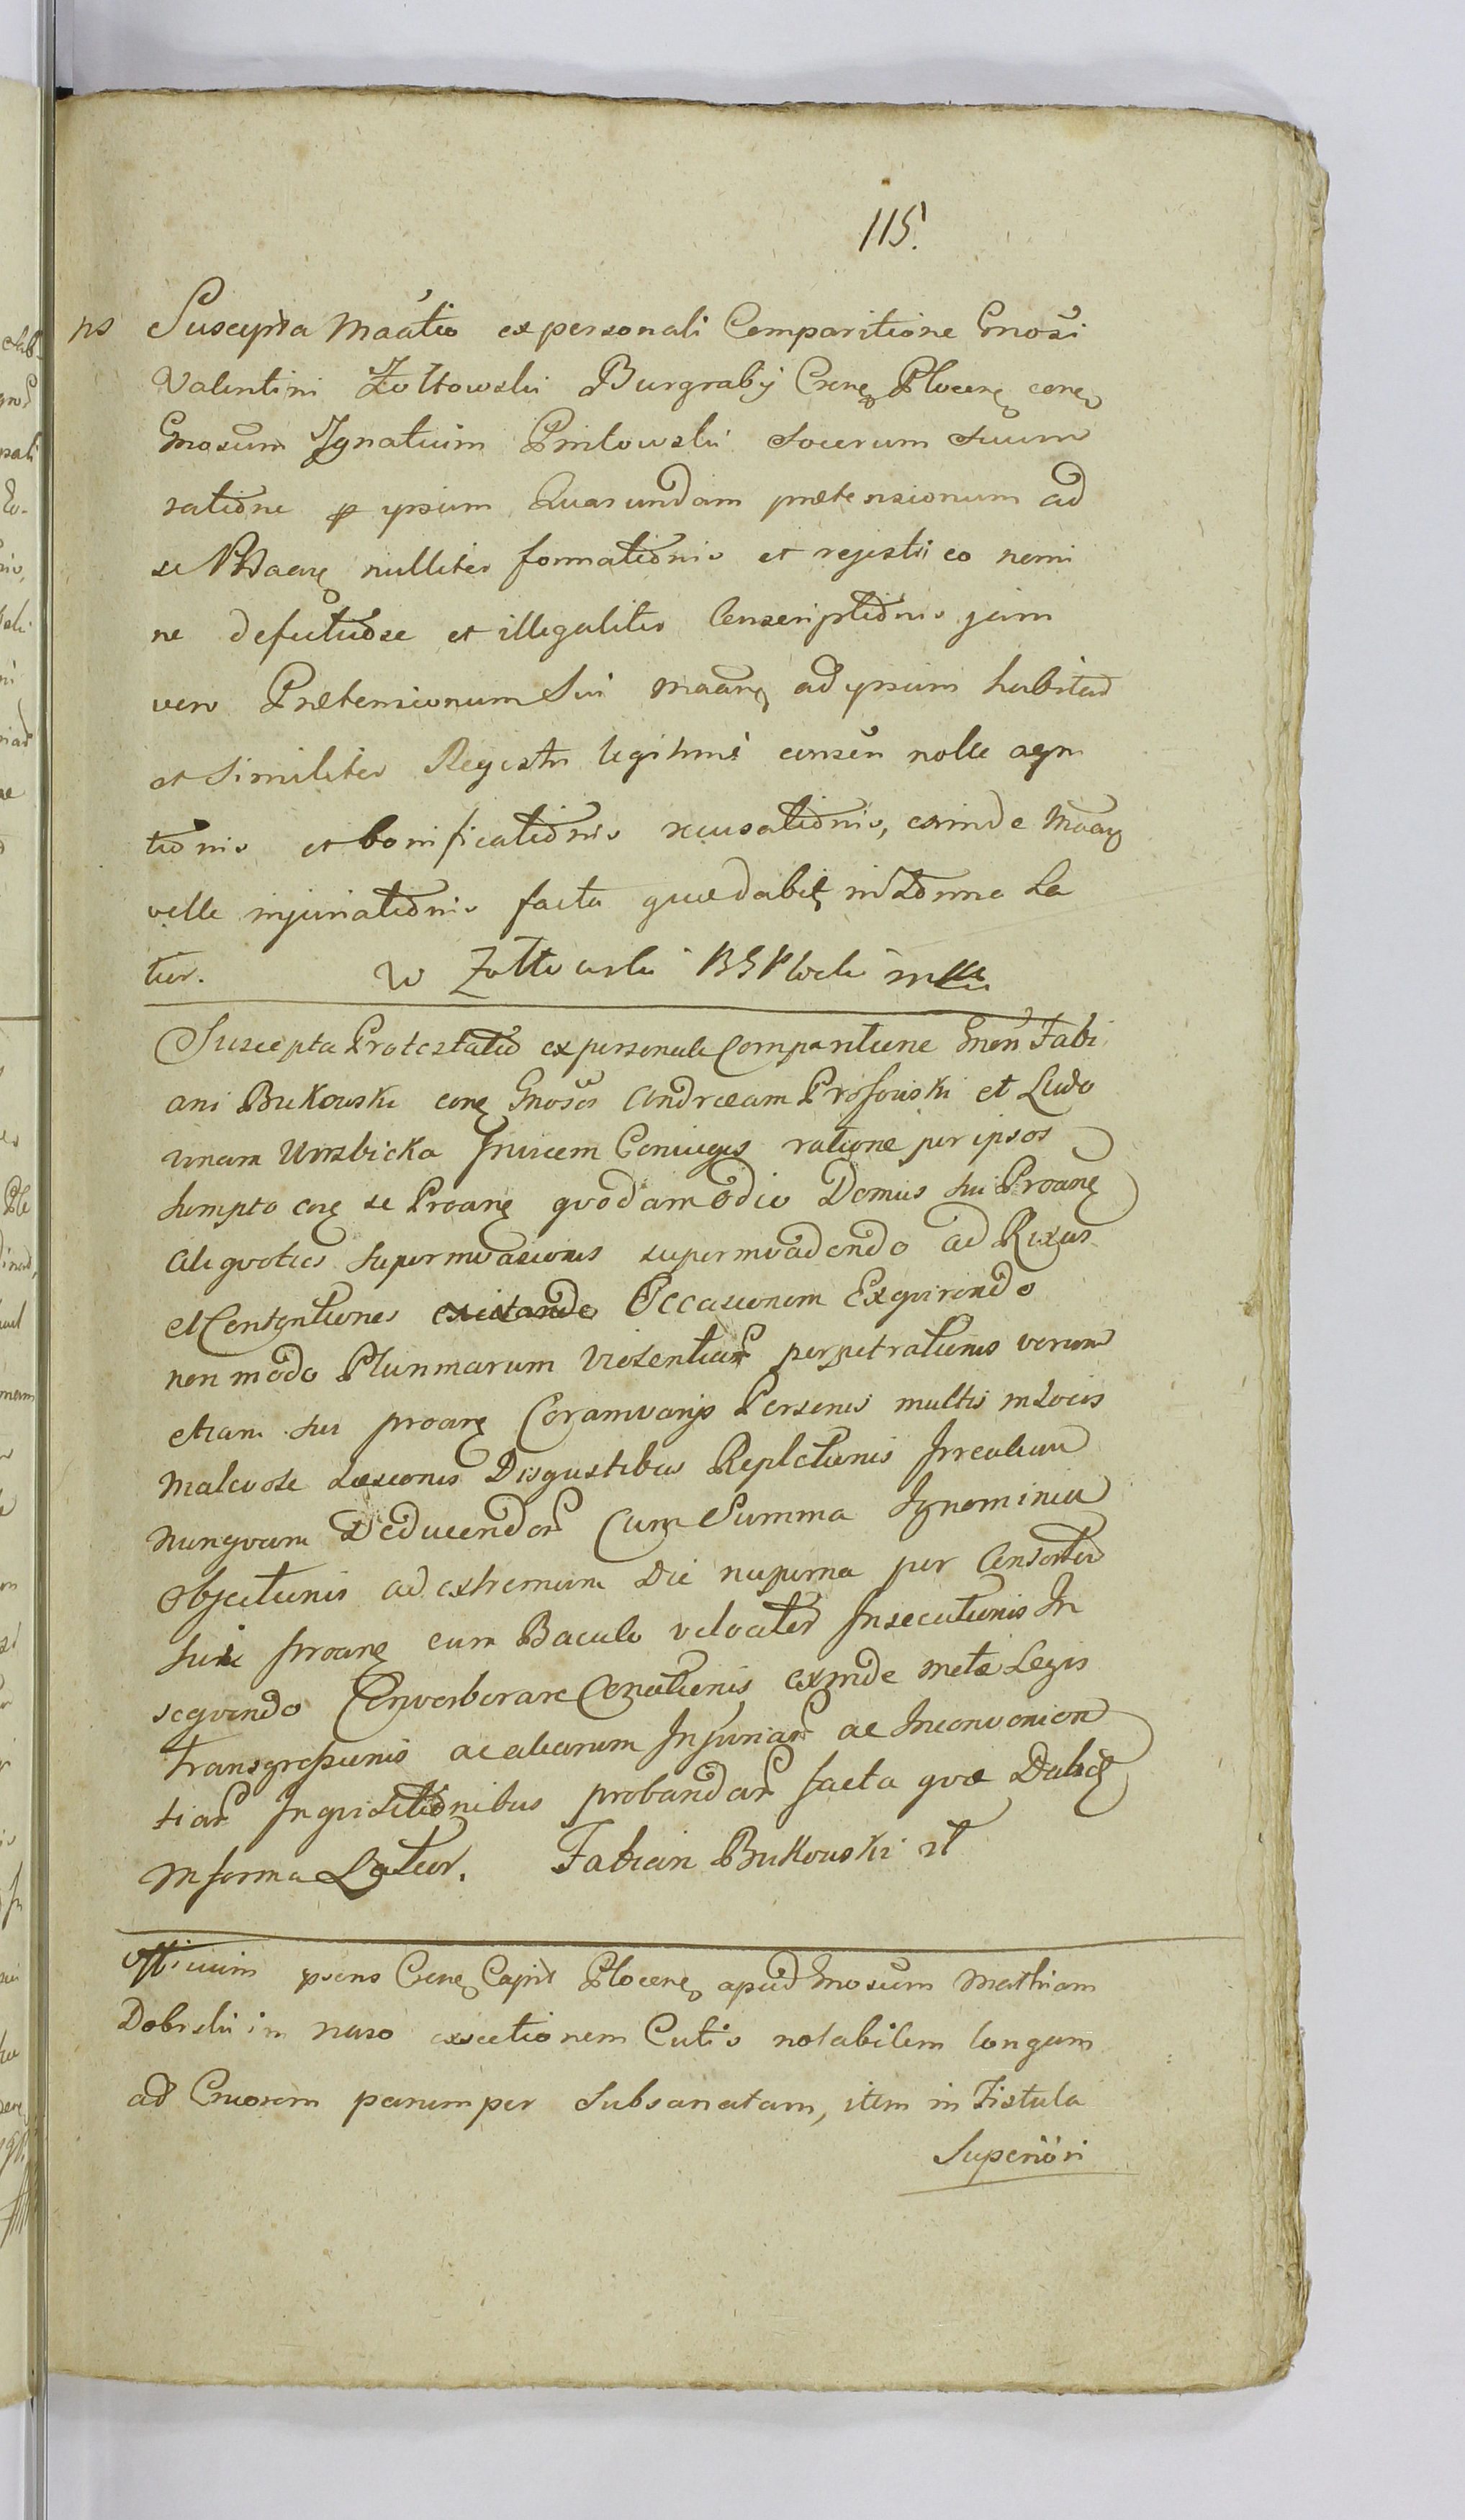 115.
ns Suscepta Maatio ex personali Comparitione Gnosi
Valentini Żołtowski Burgrabij Crenę Plocenę conę
Gnosum Ignatium Pniłowski Socerum Suum
ratione p ypsum Quarundam praetensionum ad
se nulliter formationis et rejestri eo nomi
ne defectuose et illegaliter Conscriptionis jam
vero Praetensionum Sui Maanę ad ypsum habitar
et Similiter Regestri legitime nolle agni
tionis et bonificationis recusationis, exinde Maanę
velle injuriationis facta quae dabit in Forma La
tior. W Żołtowski BGPłocki mp
Suscepta Protestatio ex personali Comparitione Gnen Fabi
ani Bukowski conę Gnosos Andraeam Prosowski et Ludo
vicam Wirzbicka Invicem Coniuges ratione per ipsos
Sumpto conę se Proanę quodam odio Domus Sui Proanę
aliquoties Superinvasionis superinvadendo ad Rixas
et Contentiones Occasionem Exquirendo
non modo Plurimarum Violentiar perpetrationis verum
etiam Sui proanę Coram varijs Personis multis in Locis
Malevole Laesionis Disgustibus Repletionis Irrealium
nunquam Deducendor Cum Summa Ignominia
Objectionis ad extremum Die nuperna per Consorter
Sui proanę cum Baculo velociter Insecutionis In
sequendo Converberare Conationis exinde metae Legis
transgressionis ac aliarum Injuriar ac Inconvenien
tiar Inquisitionibus probandar facta quae Dabit
in forma Latior. Fabian Bukowski
Officium psens Crenę Capit Plocenę apud Gnosum Mathiam
Dobrski in naso exsectionem Cutis notabilem longam
ad Cruorem parumper Subsanatam, item in Fistula
Superiori